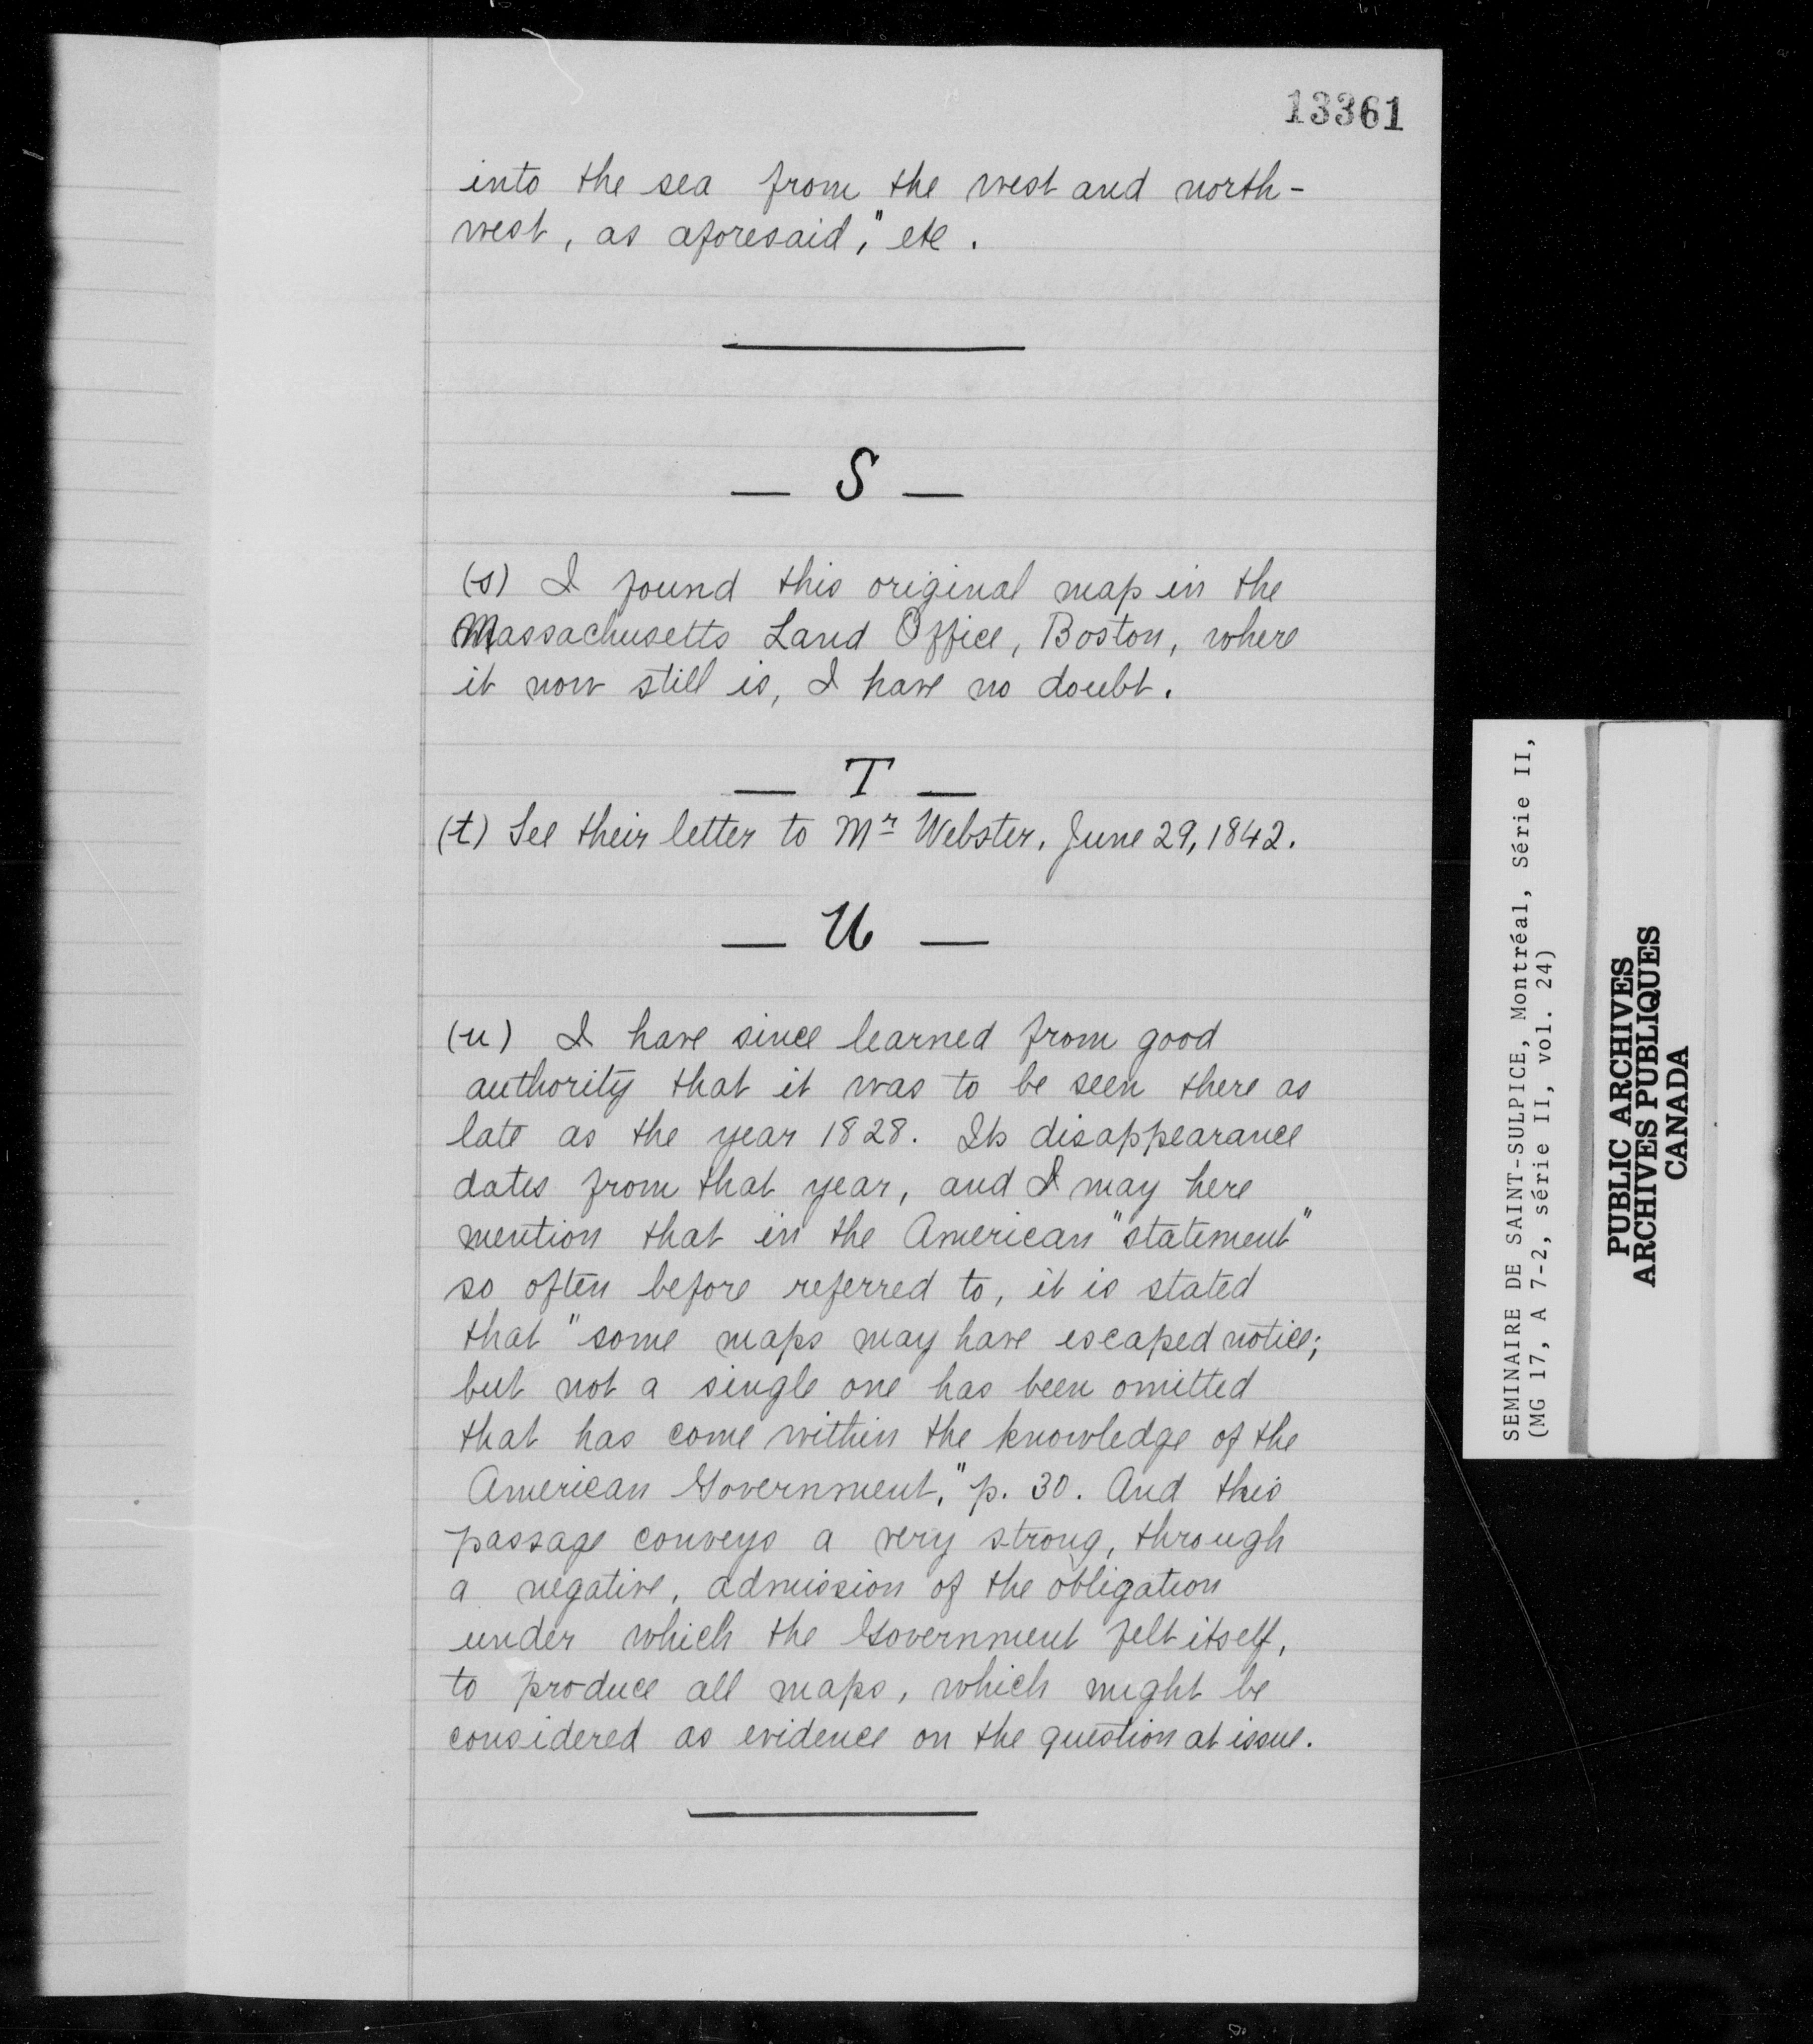 13361
into the sea from the west and north-
west, as aforesaid," etc.
— S —
(s) I found this original map in the
Massachusetts Land Office, Boston, where
it now still is, I have no doubt.
— T —
(t) See their letter to Mr Webster, June 29, 1842.
— U —
(u) I have since learned from good
authority that it was to be seen there as
late as the year 1828. Its disappearance
dates from that year, and I may here
mention that in the American "statement"
so often before referred to, it is stated
that "some maps may have escaped notice;
but not a single one has been omitted
that has come within the knowledge of the
American Government," p. 30. And this
passage conveys a very strong, through
a negative, admission of the obligation
under which the Government felt itself,
to produce all maps, which might be
considered as evidence on the question at issue.
SEMINAIRE DE SAINT-SULPICE, Montréal, Série II,
(MG 17, A 7-2, série II, vol. 24)
PUBLIC ARCHIVES
ARCHIVES PUBLIQUES
CANADA